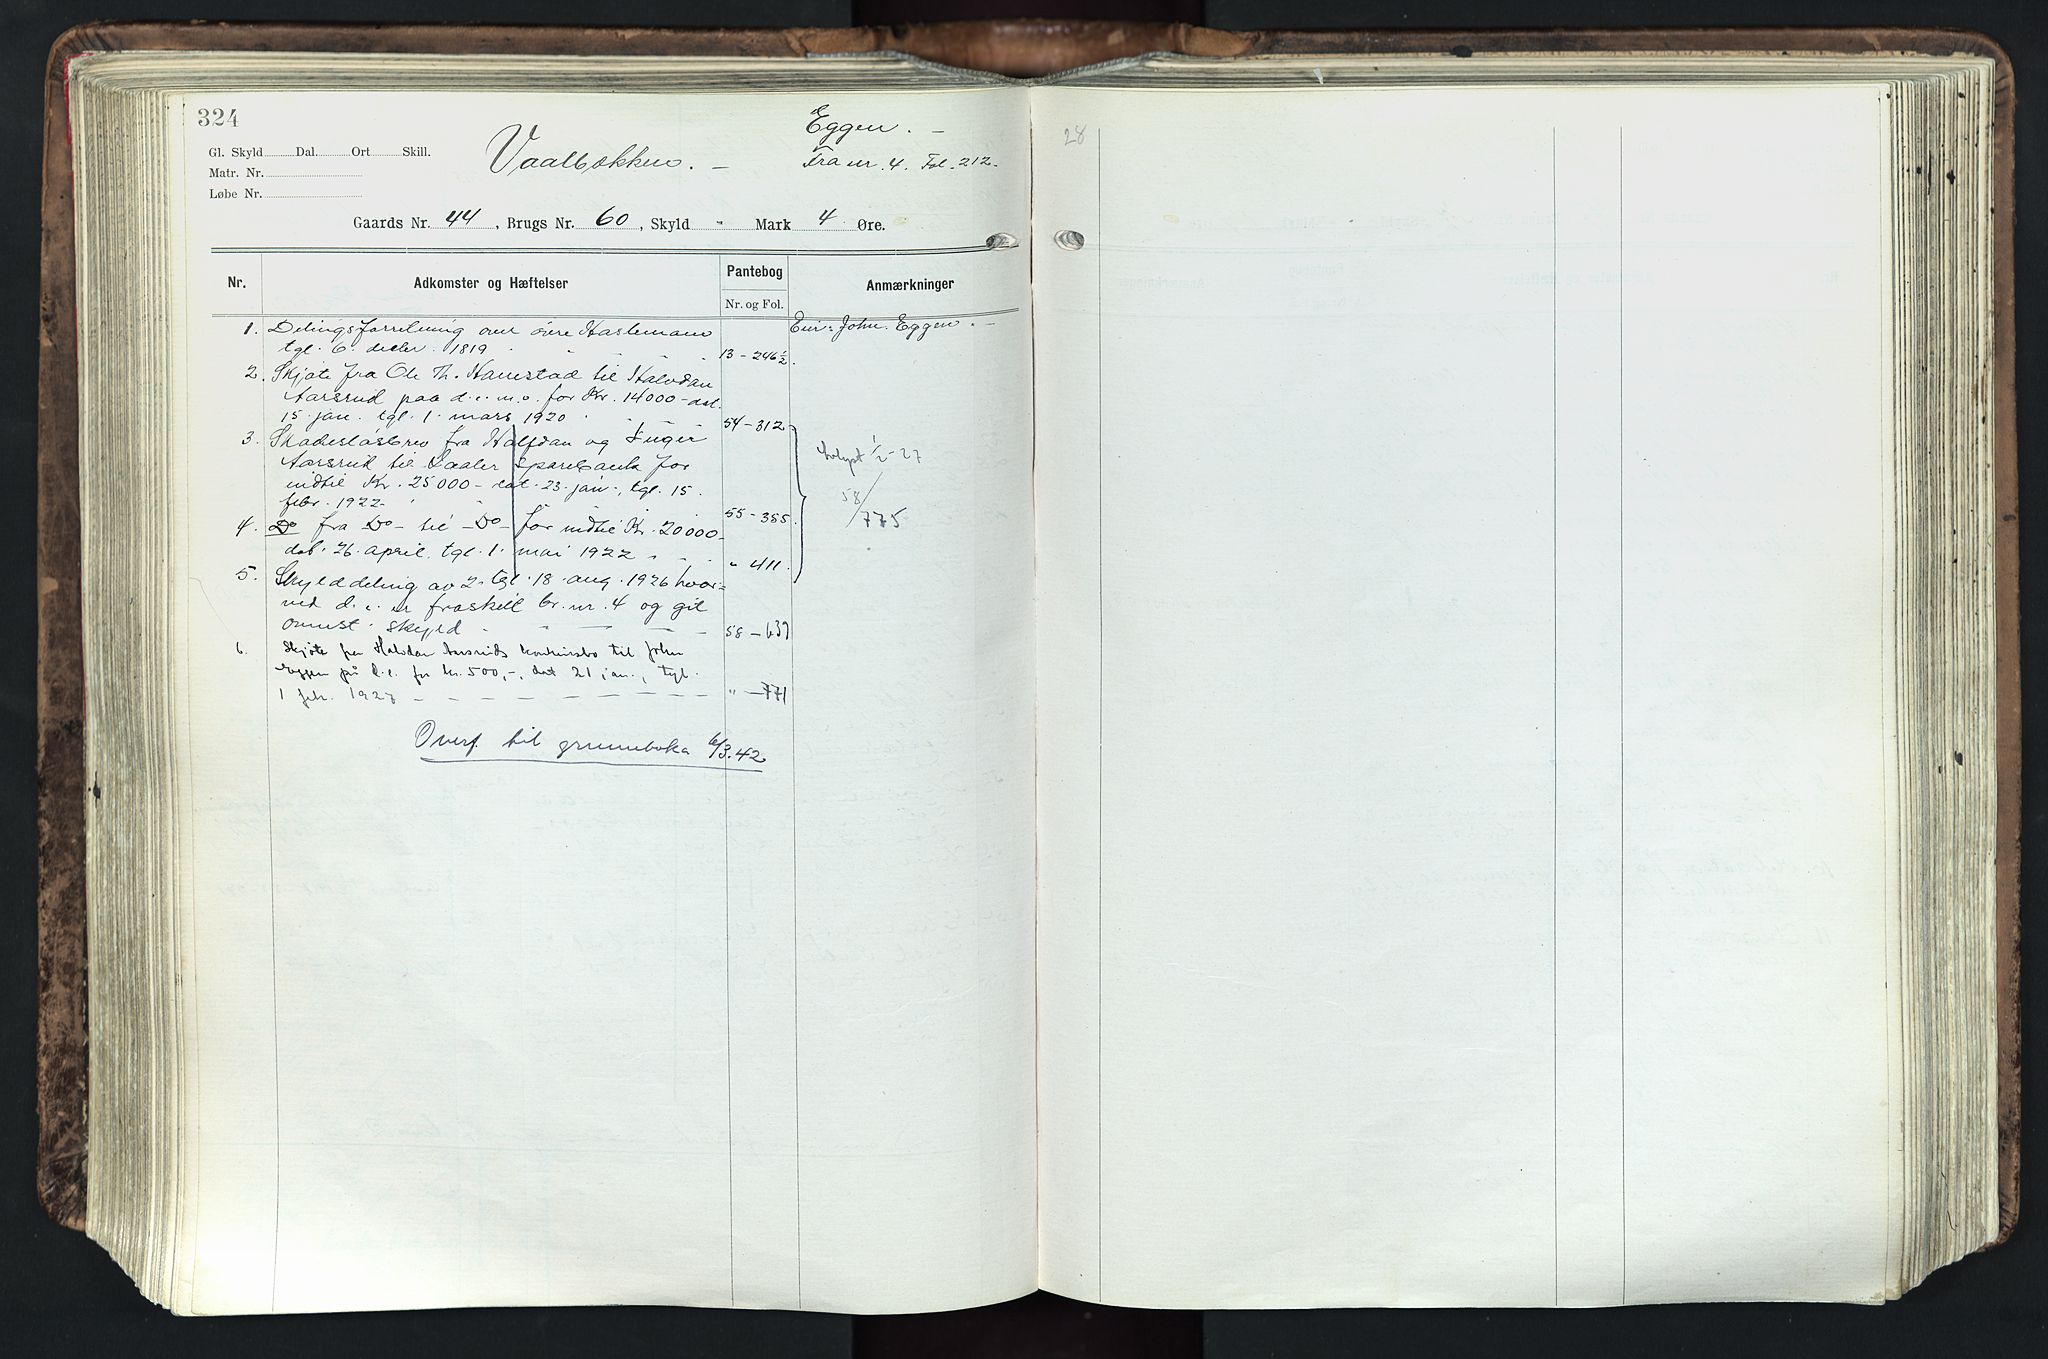 324
Gl. Skyld Dal. Ort Skill.
Matr. Nr.
Løbe Nr.
Vaalbækken. –
Eggen. –
Fra nr. 4. Fol. 212.
Gaards Nr. 44, Brugs Nr. 60, Skyld " Mark 4 Øre.
Nr. Adkomster og Hæftelser Pantebog Anmærkninger
Nr. og Fol.
1. Delingsforretning over øvre Haslemoen Eier: John Eggen. –
tgl. 6. decbr. 1819 13 – 246½
2. Skjøte fra Ole Th. Hamstad til Halvdan
Aarsrud paa d. e. m. o. for Kr. 14000 – dat.
15. jan. tgl. 1. mars 1920 54 – 312
3. Skadesløsbrev fra Halfdan og Inger
Aarsrud til Vaaler Sparebank for
indtil Kr. 25000 – dat. 23. jan., tgl. 15.
febr. 1922 55 – 385
Avlyst 1/2 – 27
58/775
4. Do fra Do – til – Do – for indtil Kr. 20000 –
dat. 26. april. tgl. 1. mai 1922 " 411
5. Skylddeling av 2. tgl. 18. aug. 1926 hvor=
ved d. e. er fraskilt br. nr. 4 og git
ovnvst. skyld 58 – 637
6. Skjøte fra Halvdan Aarsruds konkursbo til John
Eggen på d. e. for kr. 500,–, dat 21 jan., tgl.
1 febr. 1927 – – – – – – – – " – 771
Overf. til grunnboka 6/3.42
28